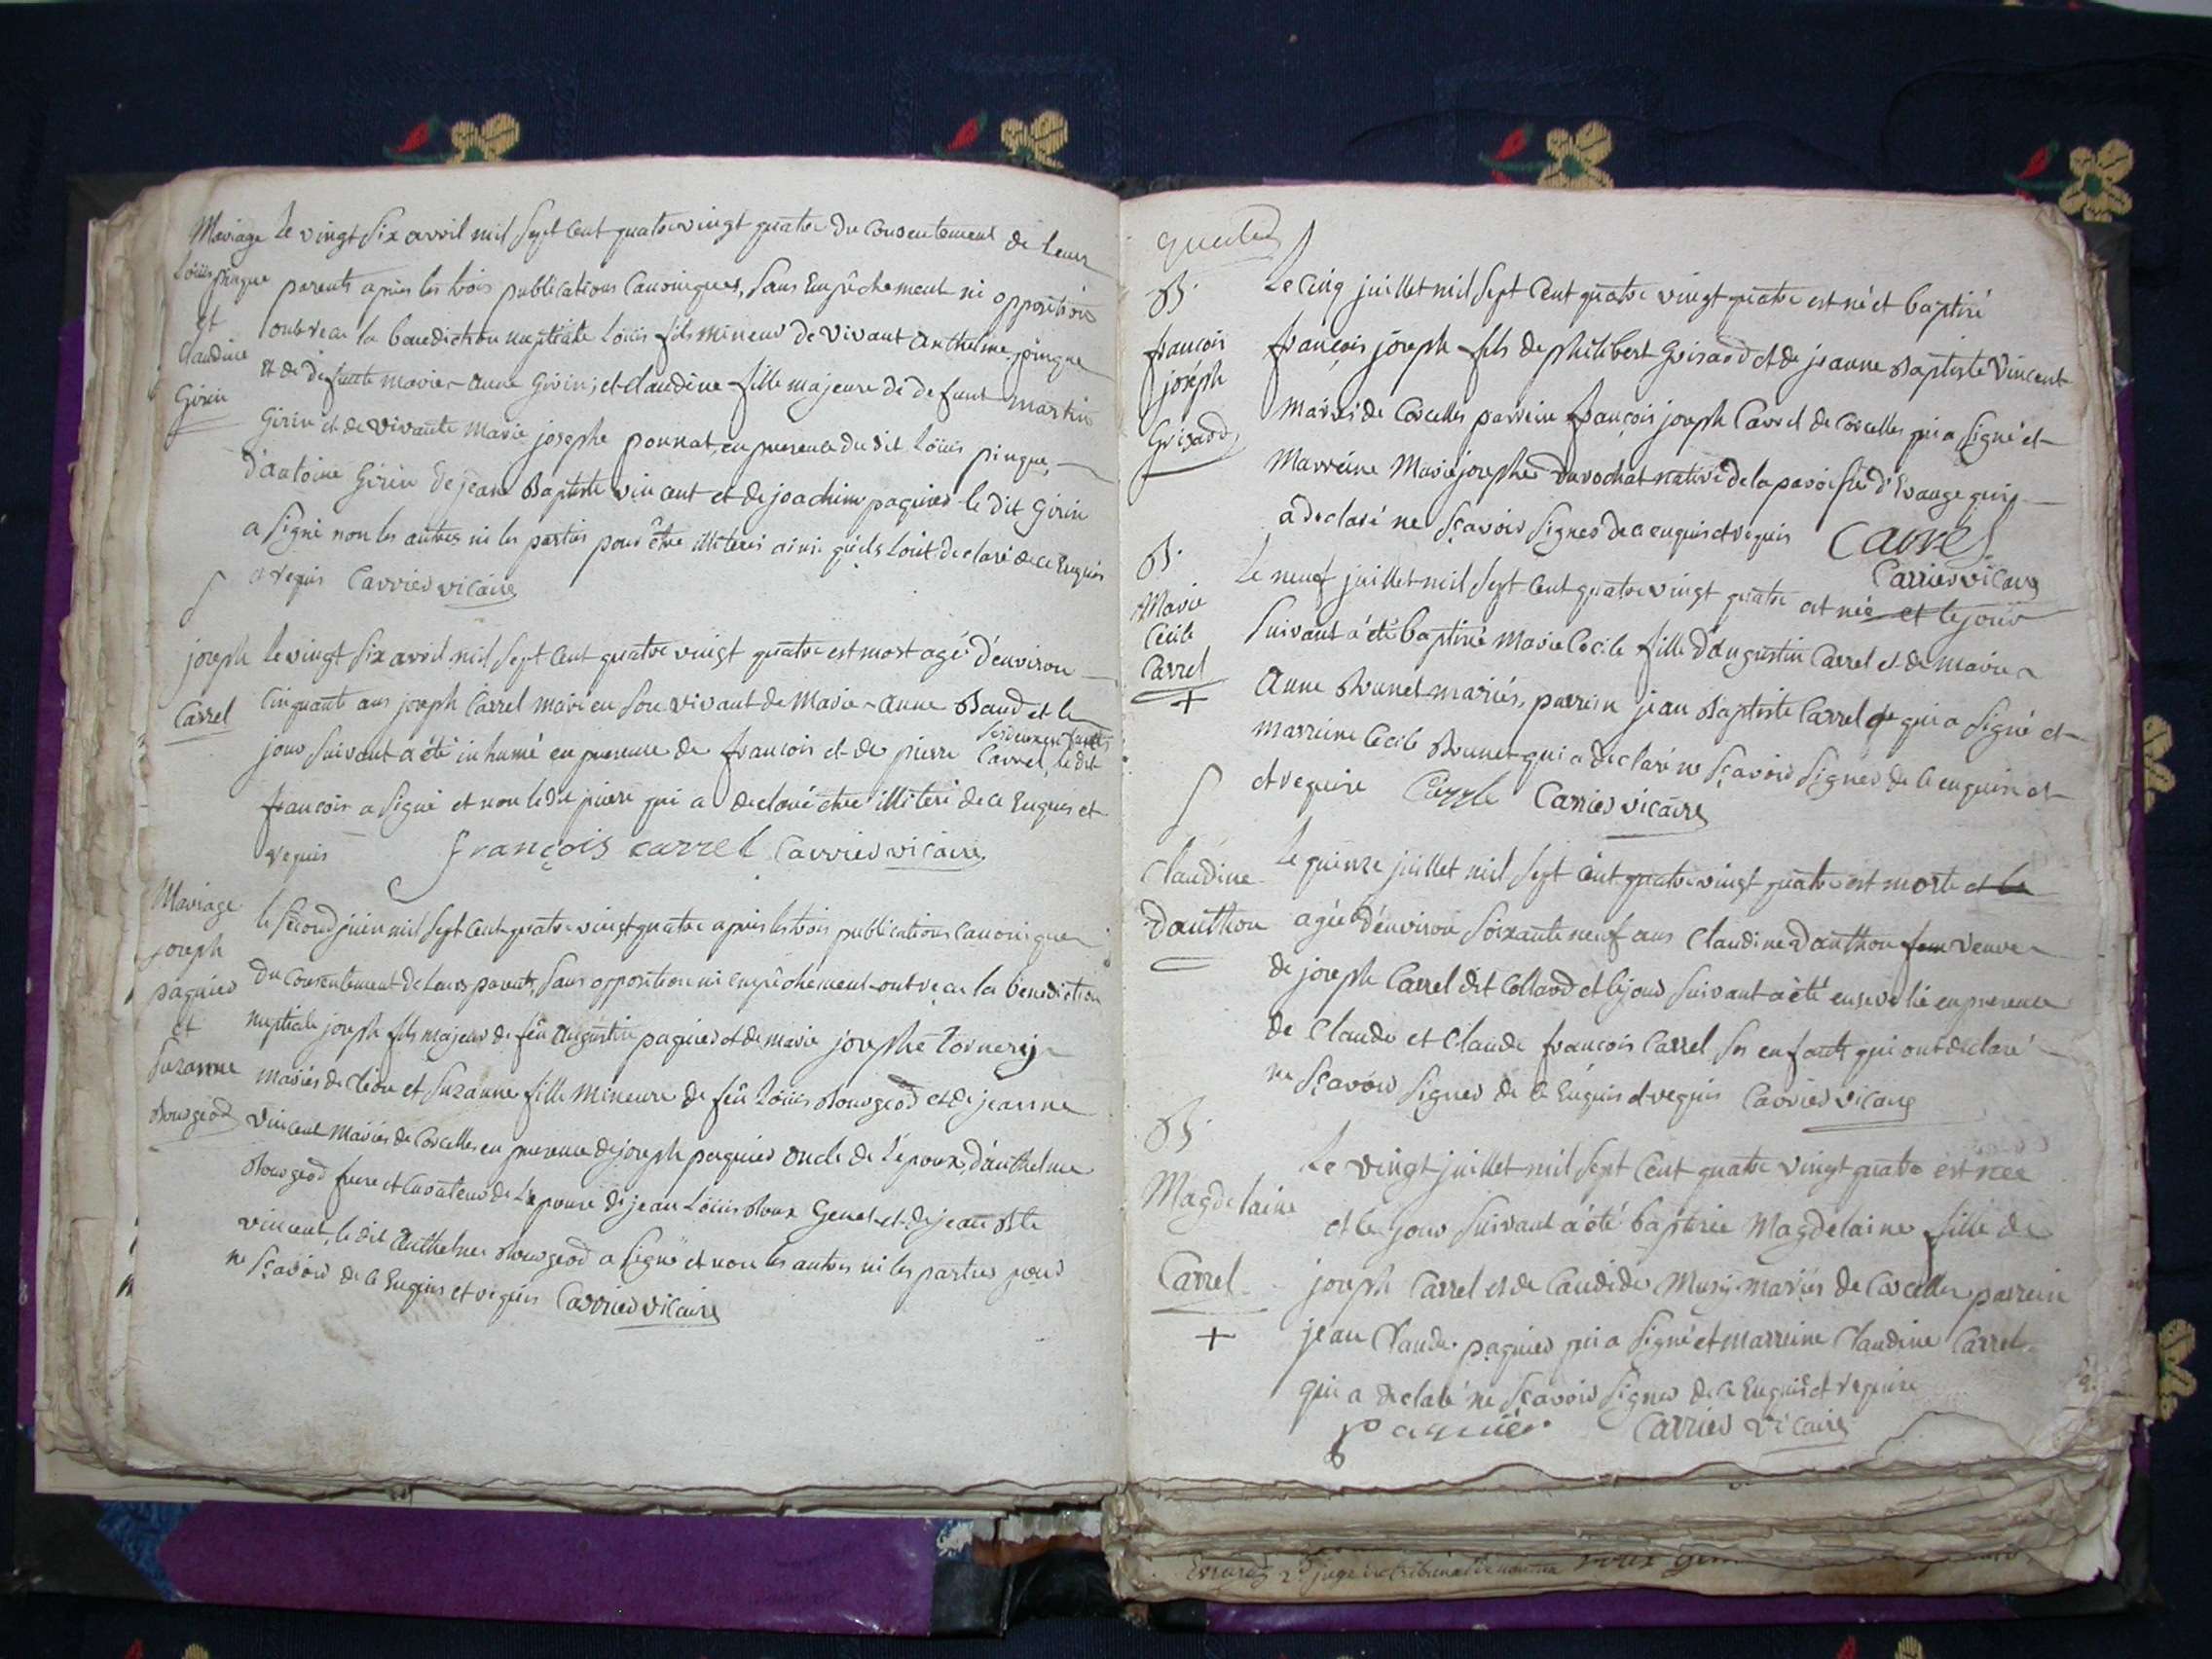 Mariage
Loüis pingue
et
Claudine
Girin
Le vingt six avril mil sept cent quatre vingt quatre du consentement de leurs
parents apres les trois publications Canoniques, sans Empêchement ni opposition
ont recu la benediction nuptiale Loüis fils mineur de vivant Anthelme pingue
et de defunte marie-anne Girin; et Claudine fille majeure de defunt martin
Girin et de vivante marie josephe ponnat, en presence du dit Loüis pingue,
d'antoine Girin de jean Baptiste vincent et de joachim paquier le dit Girin
a signé non les autres ni les parties pour être illiterés ainsi qu'ils l'ont declaré de ce Enquis
et requis Carrier vicaire
joseph
Carrel
le vingt six avril mil sept cent quatre vingt quatre est mort agé d'environ
cinquante ans joseph Carrel mari en son vivant de Marie-anne Baud et le
jour suivant a été inhumé en presence de francois et de pierre Carrel, ses deux enfants le dit
francois a signé et non le dit pierre qui a declaré etre illiteré de ce Enquis et
requis françois carrel Carrier vicaire
Mariage
joseph
paquier
et
Suzanne
Bourgeod
le second juin mil sept cent quatre vingt quatre apres les trois publications Canoniques
du consentement de leurs parents, sans opposition ni empêchement ont recu la benediction
nuptiale joseph fils majeur de feu Augustin paquier et de marie josephe
mariés de et Suzanne fille mineure de feû Loüis Bourgeod et de jeanne
vincent mariés de Corcelles en presence de joseph paquier oncle de L'epoux, d'anthelme
Bourgeod frere et curateur de L'epouse de jean Loüis Roux Genet et de jean Bte
vincent, le dit Anthelme Bourgeod a signé et non les autres ni les parties pour
ne sçavoir de ce Enquis et requis Carrier vicaire
B.
francois
joséph
Grisard
Le cinq juillet mil sept cent quatre vingt quatre est né et baptisé
françois joseph fils de philibert Grisard et de jeanne Baptiste vincent
mariés de Corcelles parrein françois joseph Carrel de Corcelles qui a signé et
marreine Marie josephe native de la paroisse d'Evange qui
a declaré ne sçavoir signer de ce enquis et requis Carrel
Carrier vicaire
B.
Marie
Cécile
Carrel
+
Le neuf juillet mil sept cent quatre vingt quatre est née et le jour
suivant a été baptisée Marie Cécile fille d'augustin Carrel et de marie
Anne Brunet mariés, parrein jean Baptiste Carrel qui a signé et
marreine Cecile Brunet qui a declaré ne sçavoir signer de ce enquise et
et requise Carrier vicaire
Claudine
Danthon
Le quinze juillet mil sept cent quatre vingt quatre est morte et le
agée d'environ soixante neuf ans Claudine Danthon fem veuve
de joseph Carrel dit Collard et le jour suivant a été ensevelie en presence
de Claude et Claude francois Carrel ses enfants qui ont declaré
ne sçavoir signer de ce Enquis et requis Carrier vicaire
B.
Magdelaine
Carrel
+
Le vingt juillet mil sept cent quatre vingt quatre est née
et le jour suivant a été baptisée Magdelaine fille de
joseph Carrel et de Candide Musy mariés de Corcelles parrein
jean Claude paquier qui a signé et marreine Claudine Carrel
qui a declaré ne sçavoir signer de ce Enquis et requise
Paquier Carrier vicaire
2e juge